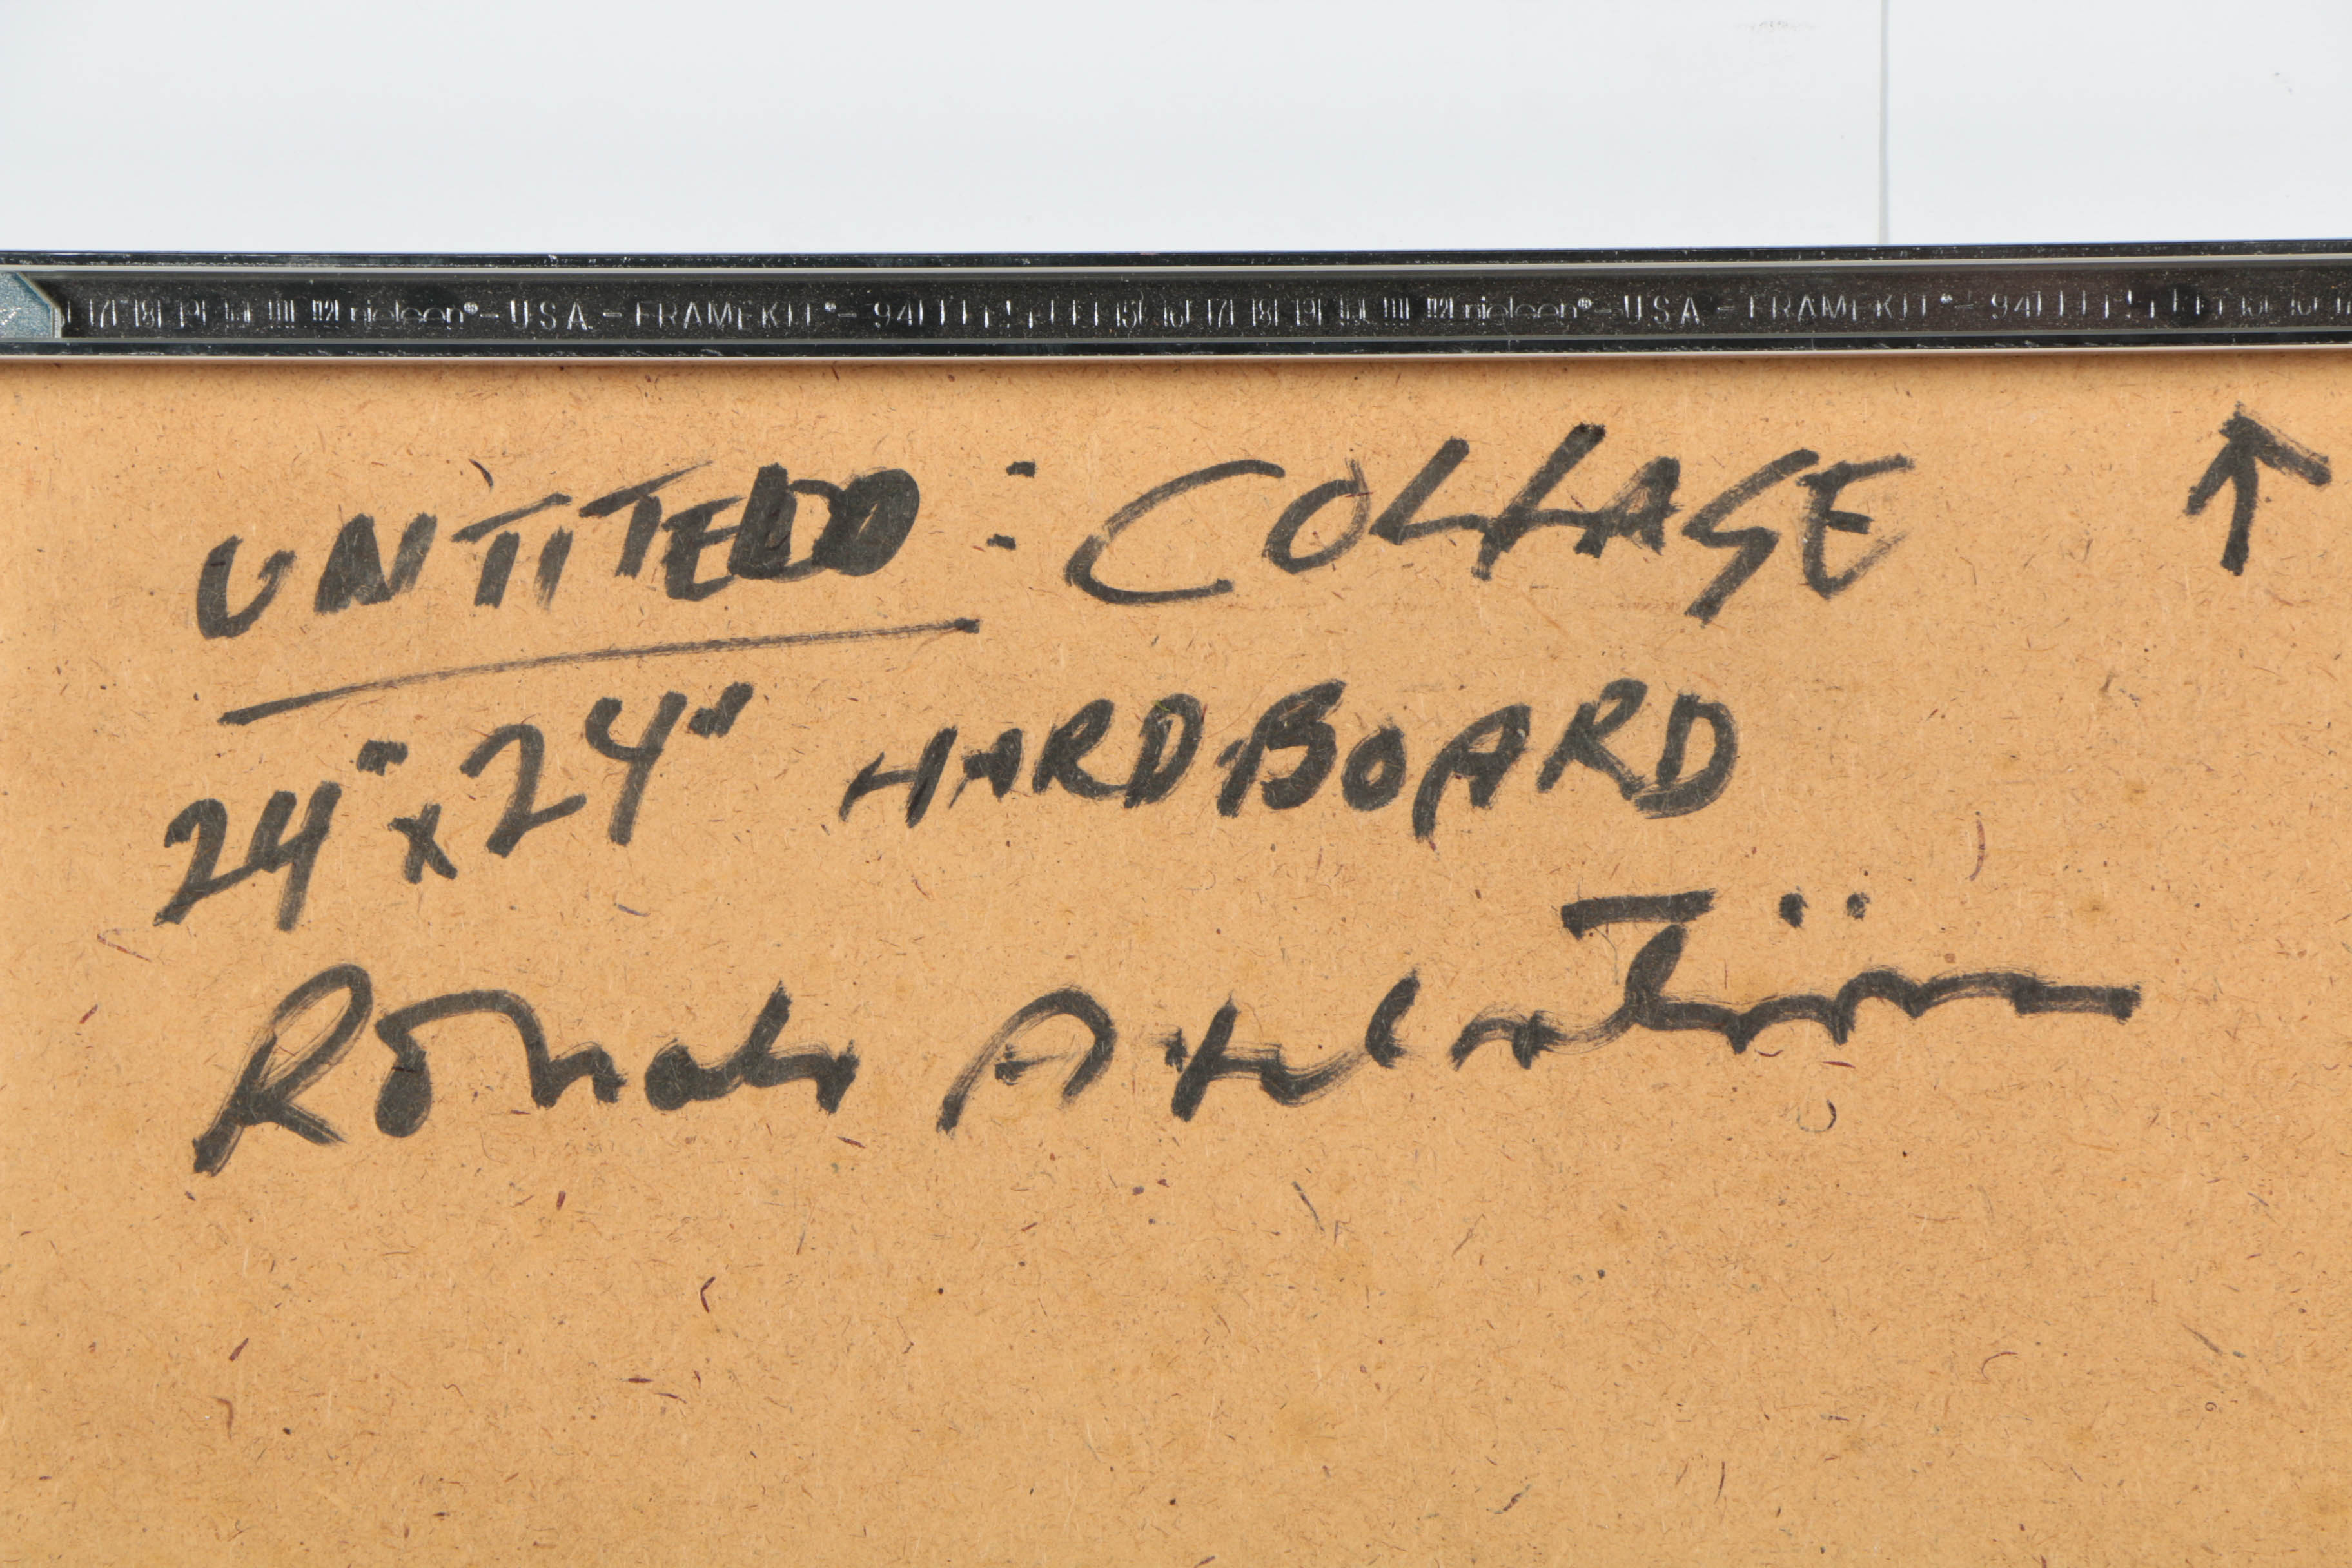 nielsen®-USA-FRAMEKIT®-94 nielsen®-USA-FRAMEKIT®-94
UNTITED : COLLAGE ↑
24" x 24" HARDBOARD
Ronald